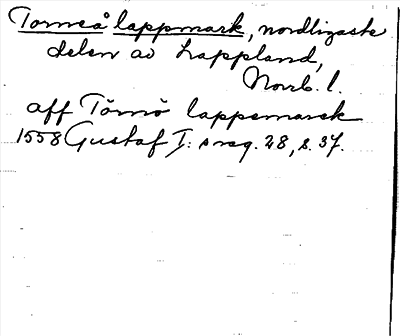 Torneå lappmark, nordligaste
delen av Lappland,
Norrb. l.
aff Törnö lappemarck
1558 Gustaf I: s reg. 28, s. 37.